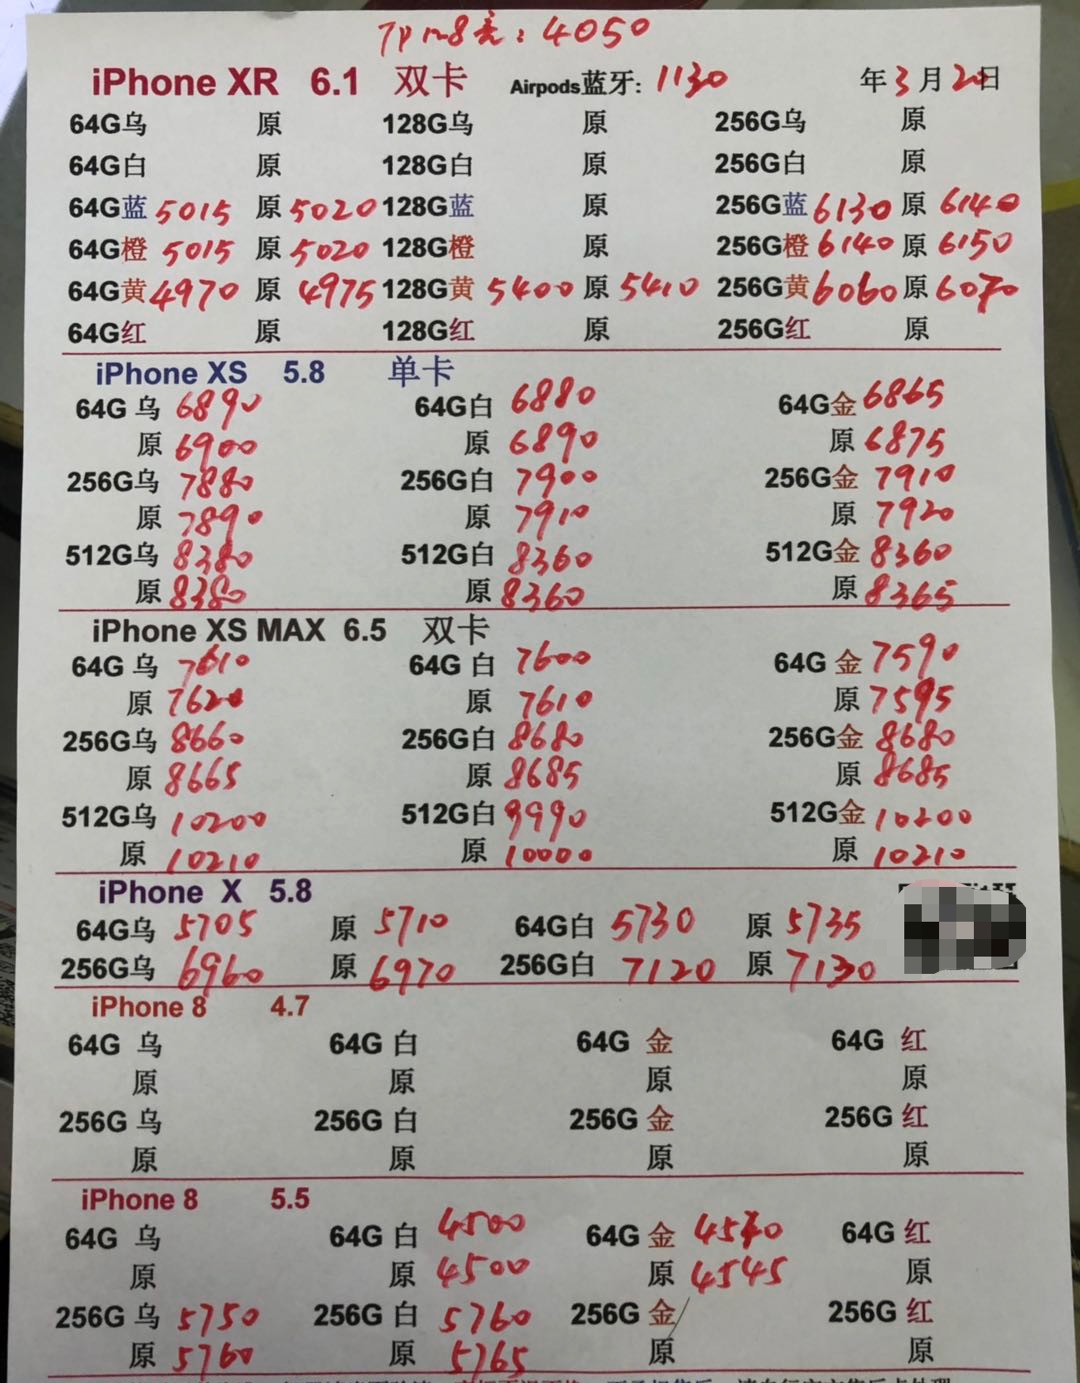 7P 128亮：4050
iPhone XR 6.1 双卡 Airpods蓝牙: 1130 年3月20日
64G乌 原 128G乌 原 256G乌 原
64G白 原 128G白 原 256G白 原
64G蓝 5015 原 5020 128G蓝 原 256G蓝 6130 原 6140
64G橙 5015 原 5020 128G橙 原 256G橙 6140 原 6150
64G黄 4970 原 4975 128G黄 5400 原 5410 256G黄 6060 原 6070
64G红 原 128G红 原 256G红 原
iPhone XS 5.8 单卡
64G 乌 6890 64G白 6880 64G金 6865
原 6900 原 6890 原 6875
256G乌 7880 256G白 7900 256G金 7910
原 7890 原 7910 原 7920
512G乌 8380 512G白 8360 512G金 8360
原 8380 原 8360 原 8365
iPhone XS MAX 6.5 双卡
64G 乌 7610 64G 白 7600 64G 金 7590
原 7620 原 7610 原 7595
256G乌 8660 256G白 8680 256G金 8680
原 8665 原 8685 原 8685
512G乌 10200 512G白 9990 512G金 10200
原 10210 原 10000 原 10210
iPhone X 5.8
64G乌 5705 原 5710 64G白 5730 原 5735
256G乌 6960 原 6970 256G白 7120 原 7130
iPhone 8 4.7
64G 乌 64G 白 64G 金 64G 红
原 原 原 原
256G 乌 256G 白 256G 金 256G 红
原 原 原 原
iPhone 8 5.5
64G 乌 64G 白 4500 64G 金 4540 64G 红
原 原 4500 原 4545 原
256G 乌 5750 256G 白 5760 256G 金 256G 红
原 5760 原 5765 原 原